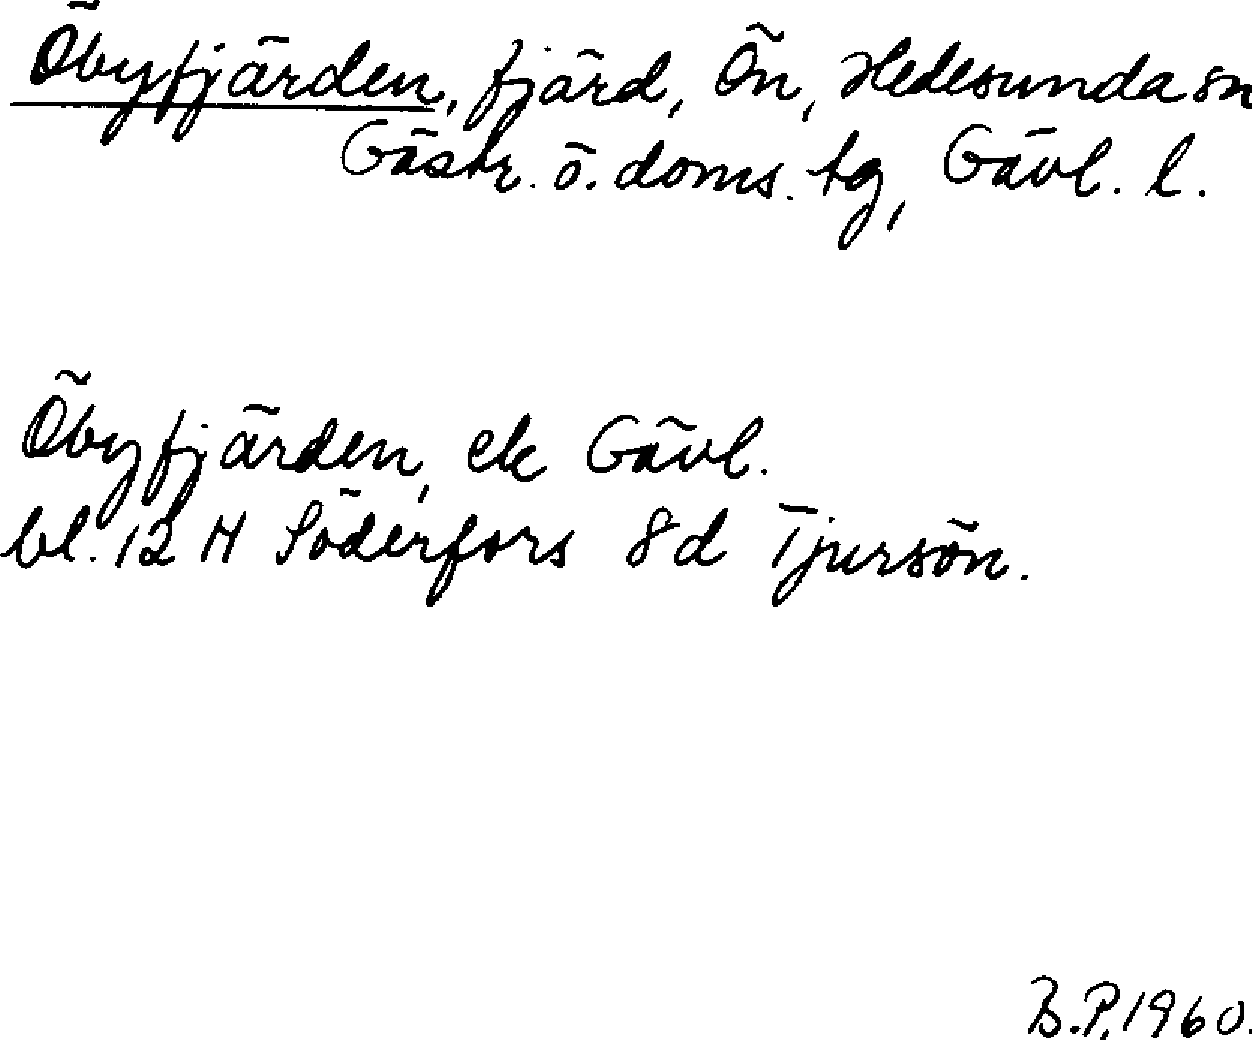 Öbyfjärden, fjärd, Ön, Hedesunda sn
Gästr. ö. doms. tg, Gävl. l.
Öbyfjärden, ek Gävl.
bl. 12 H Söderfors 8d Tjursön.
B.P. 1960.